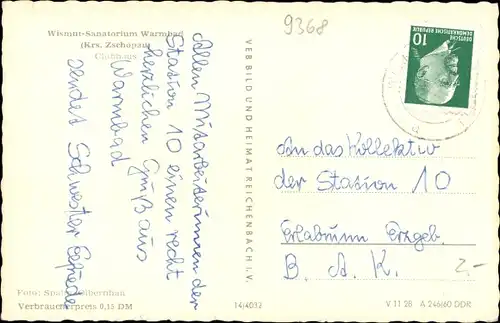 Wismut-Sanatorium Warmbad
(Krs. Zschopau)
9368
DEUTSCHE
DEMOKRATISCHE REPUBLIK
10
Allen Mitarbeiterinnen der
Station 10 einen recht
herzlichen Gruß aus
Warmbad
sendet Schwester
VEB BILD UND HEIMAT REICHENBACH I. V.
An das Kollektiv
der Station 10
Erlabrunn Erzgeb.
B. A. K.
2.-
Foto:
Verbraucherpreis 0,15 DM
14/4032
V 11 28 A 246/60 DDR